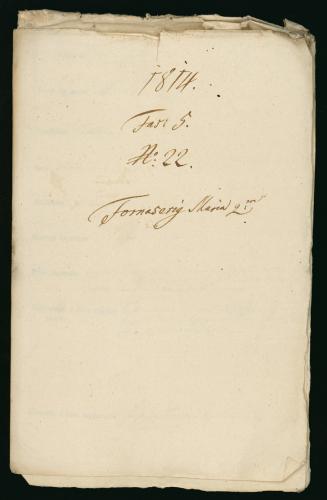 1814.
Fasc 5.
No: 22.
Fornaserig Maria